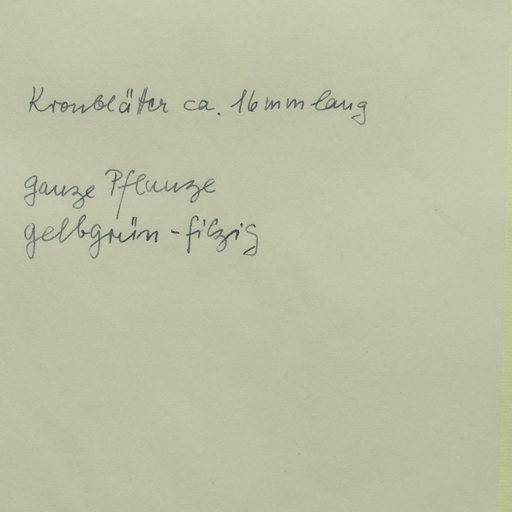 Kronbläter ca. 16mm lang
ganze Pflanze
gelbgrün - filzig